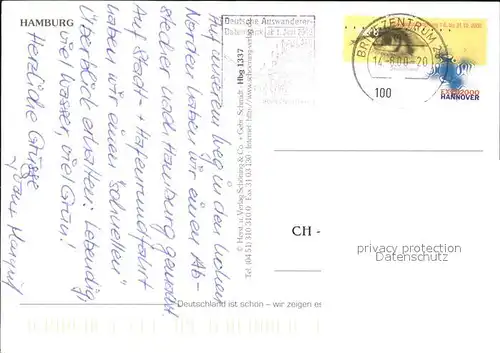 HAMBURG
Auf unserem Weg in den hohen
Norden haben wir einen Ab-
stecher nach Hamburg gemacht.
Auf Stadt- + Hafenrundfahrt
haben wir einen "schnellen"
Überblick erhalten: Lebendig,
viel Wasser, viel Grün!
Herzliche Grüsse
© Horst. u. Verlag Schöning & Co. • Gebr. Schmidt
Hbg 1337
Deutsche Auswanderer-
BRIEFZENTRUM
14.-8.00-20
100
EXPO2000
HANNOVER
CH -
privacy protection
Datenschutz
Deutschland ist schön – wir zeigen es